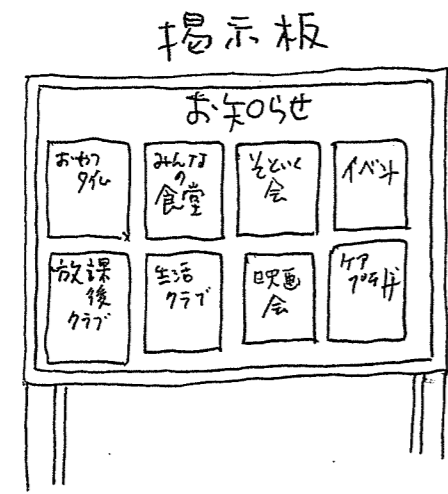 掲示板
お知らせ
おやつ
タイム
みんな
の
食堂
そといく
会
イベント
放課
後
クラブ
生活
クラブ
映画
会
ケア